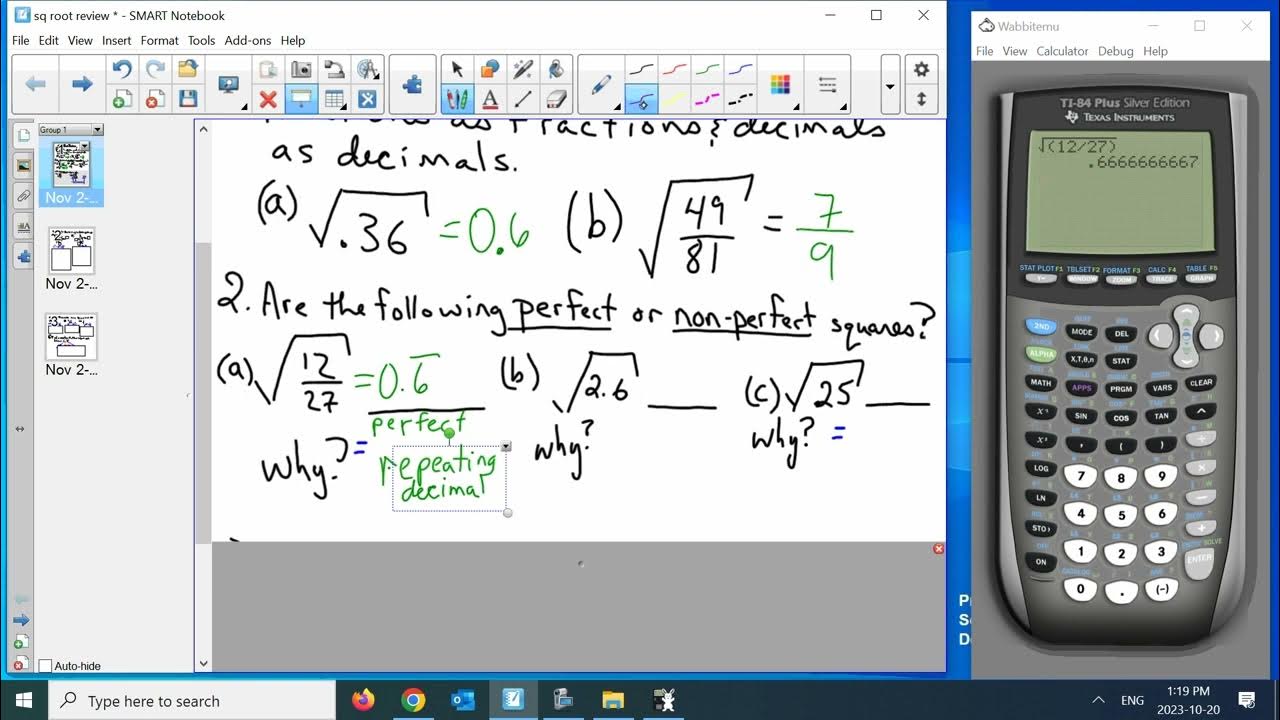 sq root review * - SMART Notebook
File Edit View Insert Format Tools Add-ons Help
Group 1
Nov 2-...
Nov 2-...
Nov 2-...
Auto-hide
as fractions & decimals
as decimals.
(a) √.36 = 0.6 (b) √49/81 = 7/9
2. Are the following perfect or non-perfect squares?
(a) √12/27 = 0.6̅ (b) √2.6 ____ (c) √25 ____
perfect
why? = repeating decimal
why?
why? =
Wabbitemu
File View Calculator Debug Help
TI-84 Plus Silver Edition
TEXAS INSTRUMENTS
√(12/27)
.6666666667
STAT PLOT F1 TBLSET F2 FORMAT F3 CALC F4 TABLE F5
Y= WINDOW ZOOM TRACE GRAPH
2ND MODE DEL
ALPHA X,T,θ,n STAT
MATH APPS PRGM VARS CLEAR
X⁻¹ SIN COS TAN ^
X² , ( ) ÷
LOG 7 8 9 ×
LN 4 5 6 −
STO› 1 2 3 +
ON 0 . (-) ENTER
Type here to search
ENG
1:19 PM
2023-10-20